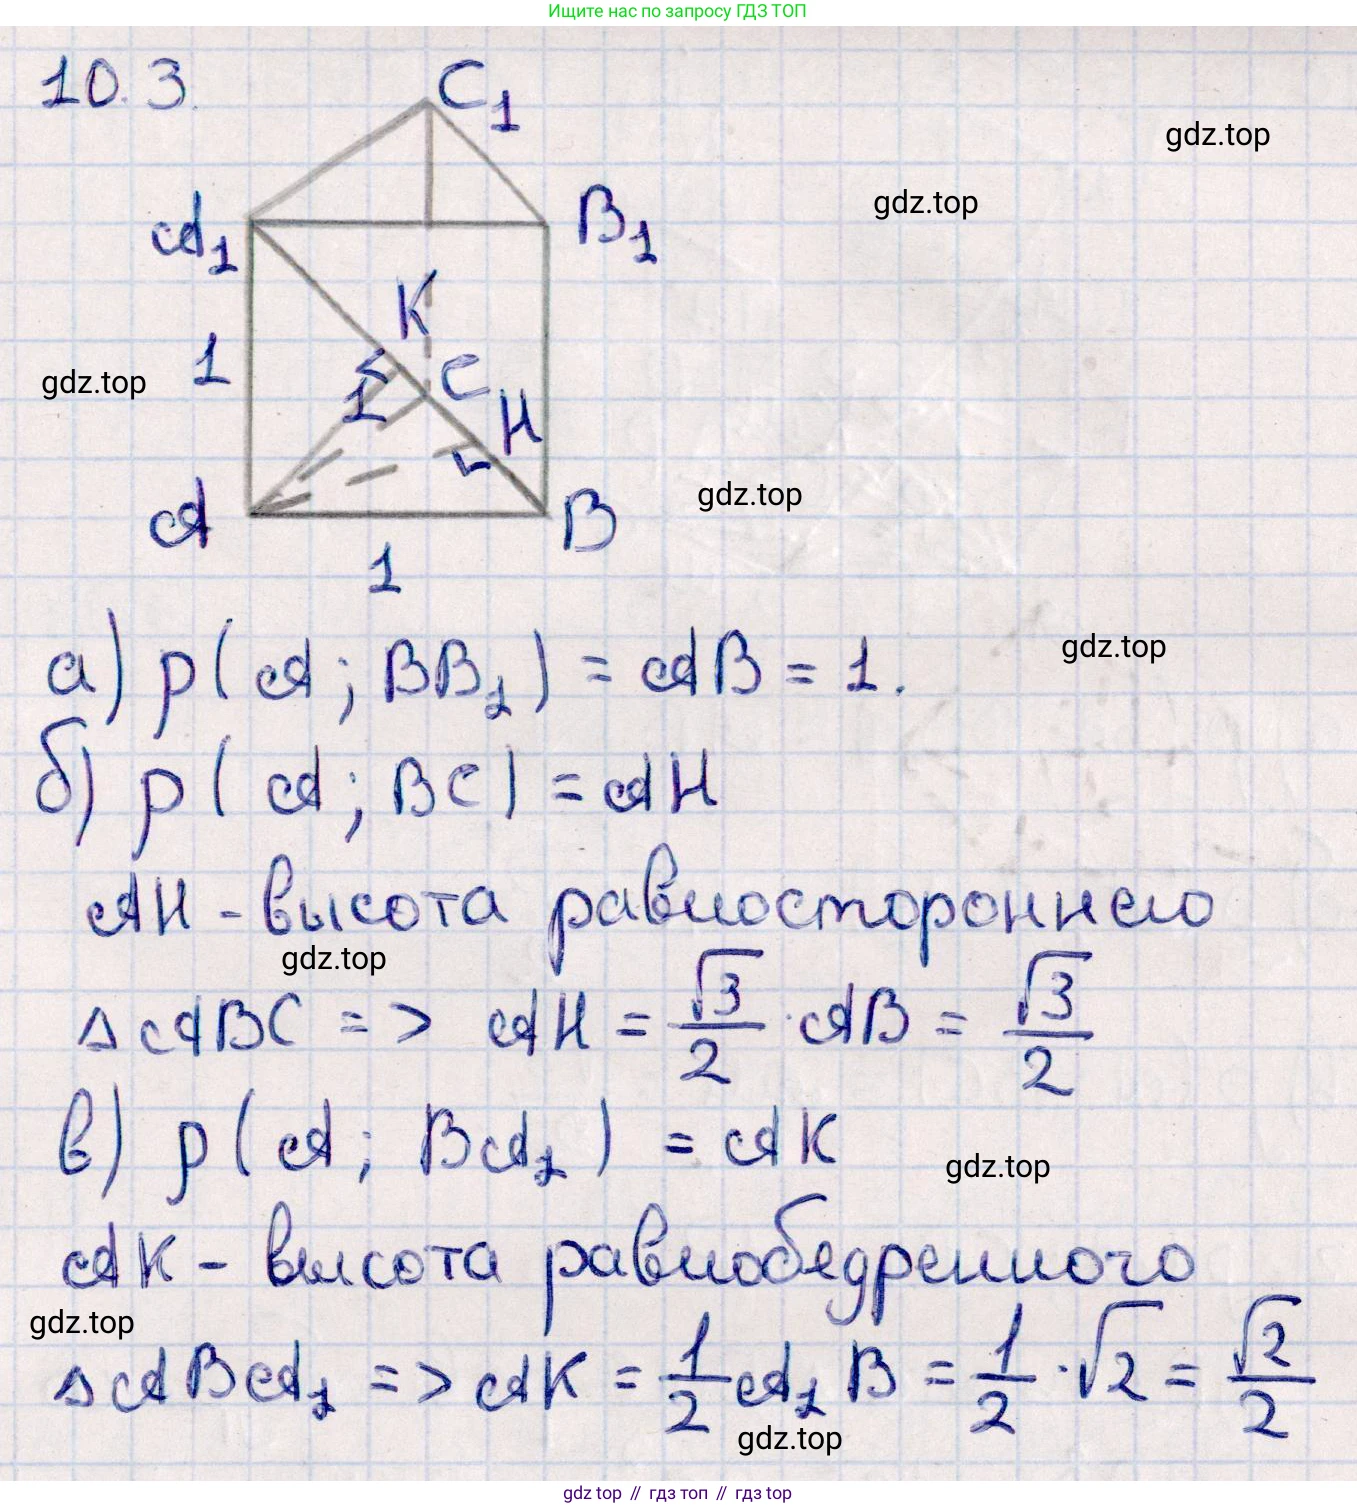 Ищите нас по запросу ГДЗ ТОП
10.3.
C₁
gdz.top
gdz.top
A₁
B₁
K
1
C
gdz.top
1
H
gdz.top
A
B
1
а) ρ(A; BB₁) = AB = 1.
gdz.top
б) ρ(A; BC) = AH
AH - высота равностороннего
gdz.top
△ABC => AH = √3/2 · AB = √3/2
в) ρ(A; BA₁) = AK
gdz.top
AK - высота равнобедренного
gdz.top
△ABA₁ => AK = 1/2 A₁B = 1/2 · √2 = √2/2
gdz.top
gdz top // гдз топ // gdz top